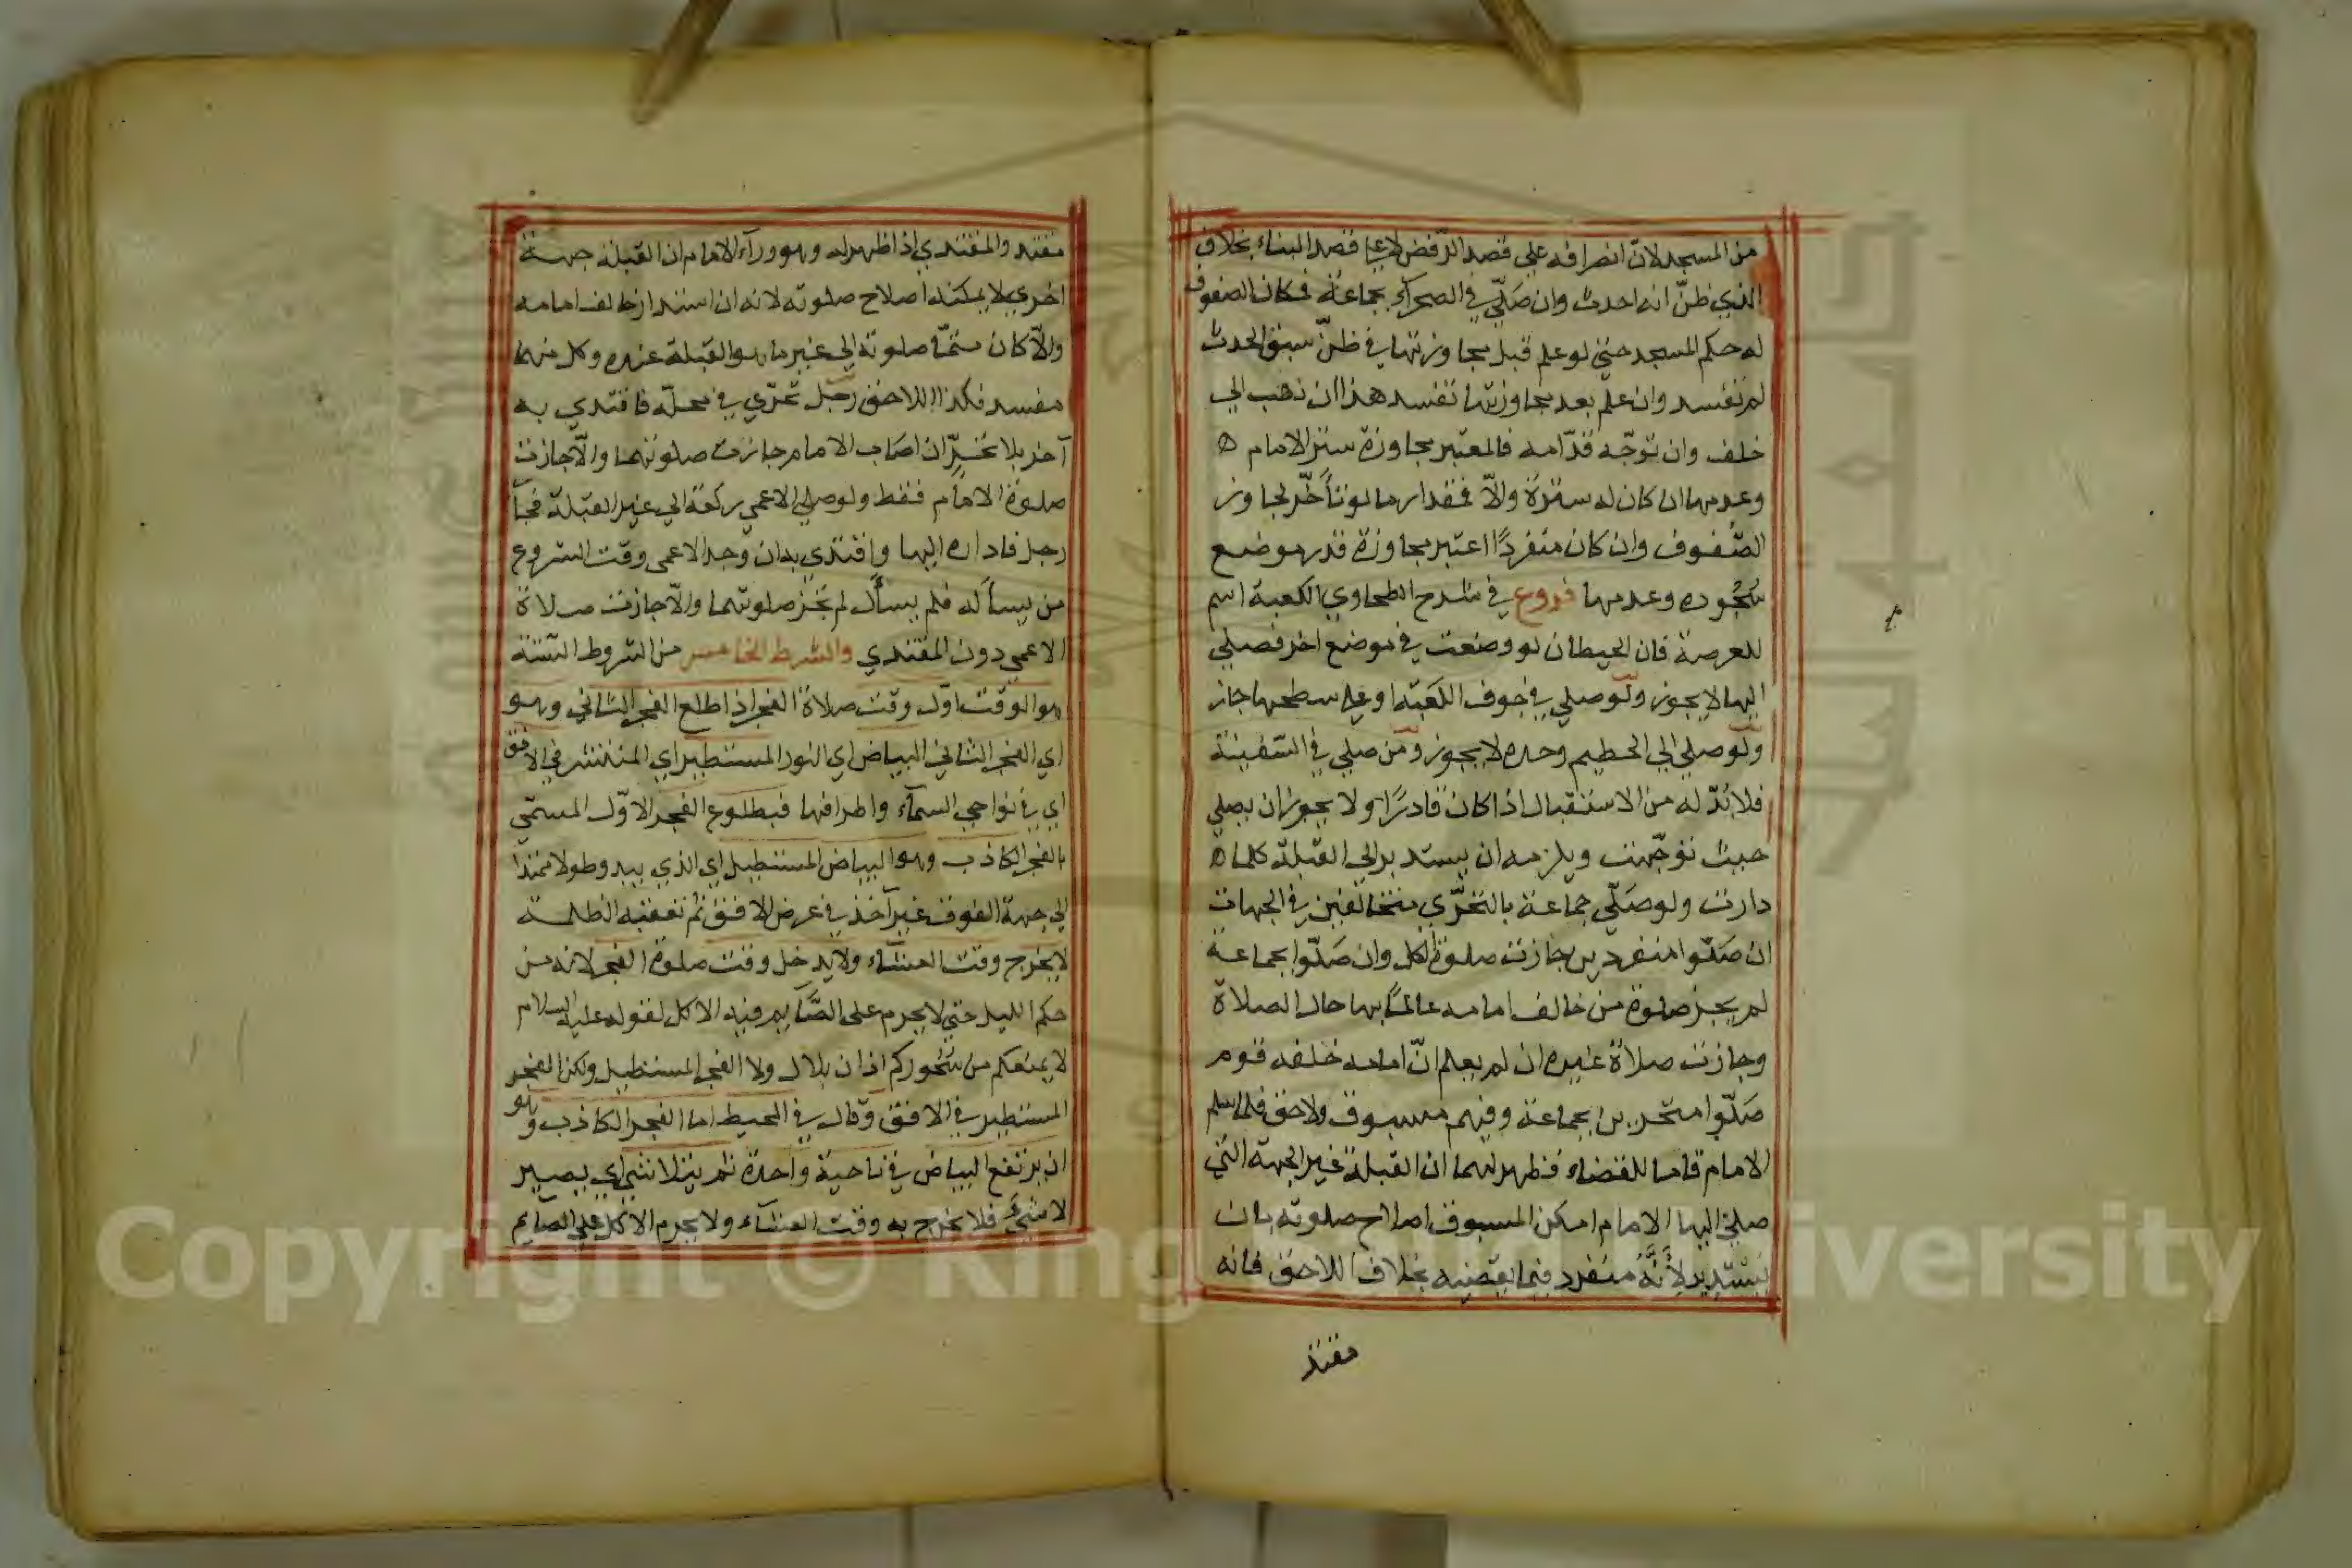 من المسجد لانّ انصرافه علي قصد الرّفض لا علي قصد البناء بخلاف
الذي ظنّ انه احدث وان صَلّي في الصحرآء بجماعة فكان الصفوف
له حكم المسجد حتي لو علم قبل مجاوزتها في ظنّ سبق الحدث
لم تفسد وان علم بعد مجاوزتها تفسد هذا ان ذهب الي
خلف وان توجّه قدّامه فالمعتبر مجاوزة ستر الامام ه
وعدمها ان كان له سترة والّا فمقدار ما لو تأخّر لجاوز
الصّفوف وان كان منفردًا اعتبر مجاوزة قدر موضع
سُجُوده وعدمها فروع في شرح الطحاوي الكعبة اسم
للعرصة فان الحيطان لو وضعت في موضع اخر فصلي
اليها لا يجوز ولو صلي في جوف الكَعبَة او علي سطحها جاز
ولو صلي الي الحطيم وحده لا يجوز ومن صلي في السّفينة
فلا بُدّ له من الاستقبال اذا كان قادرًا ولا يجوز ان يصلي
حيث توجّهت ويلزمه ان يستدير الي القبلة كلما ه
دارت ولو صَلّي جماعة بالتحرّي متخالفين في الجهات
ان صَلّوا منفردين جازت صلوة الكل وان صَلّوا بجماعة
لم يجز صلوة من خالف امامه عالمًا بها حال الصلاة
وجازت صلاة غيره ان لم يعلم انّ امامه خلفه قوم
صَلّوا متحرين بجماعة وفيهم مسبوق ولاحق فلما سلم
الامام قاما للقضاء فظهر لهما ان القبلة غير الجهة التي
صلي اليها الامام امكن المسبوق اصلاح صلوته بان
يستدير لِأَنَّهُ منفرد فيما يقضيه بخلاف اللاحق فانه
مقتد
مقتد والمقتدي اذا ظهر له وهو ورآء الامام ان القبلة جهة
اخري لا يمكنه اصلاح صلوته لانه ان استدار خالف امامه
والّا كان متمّا صلوته الي غير ما هو القبلة عنده وكل منهما
مفسد فكذا اللاحق رجل تحرّي في محلّه فاقتدي به
آخر بلا تحرّ ان اصَاب الامام جازت صلوتهما والّا جازت
صلوة الامام فقط ولو صلي الاعمي ركعة الي غير القبلة فجآ
رجل فاداره اليها واقتدي به ان وجد الاعمي وقت الشروع
من يسأله فلم يسأل لم تجز صلوتهما والّا جازت صلاة
الاعمي دون المقتدي والشرط الخامس من الشروط السّتة
هو الوقت اوّل وقت صلاة الفجر اذا طلع الفجر الثاني وهو
اي الفجر الثاني البياض اي النور المستطير اي المنتشر في الافق
اي في نواحي السمآء واطرافها فبطلوع الفجر الاوّل المسمّي
بالفجر الكاذب وهو البياض المستطيل اي الذي يبدو طولا ممتدا
الي جهة الفوق غير آخذ في عرض الافق ثم تعقبه الظلمة
لا يخرج وقت العشآء ولا يدخل وقت صلوة الفجر لانه من
حكم الليل حتي لا يحرم على الصَّآيم فيه الاكل لقوله عليه السلام
لا يمنعكم من سُحوركم اذان بلال ولا الفجر المستطيل ولكن الفجر
المستطير في الافق وقال في المحيط اما الفجر الكاذب وهو
ان يرتفع البياض في ناحية واحدة ثم يتلاشي اي يصير
لا شيء فلا يخرج به وقت العشآء ولا يحرم الاكل علي الصآيم